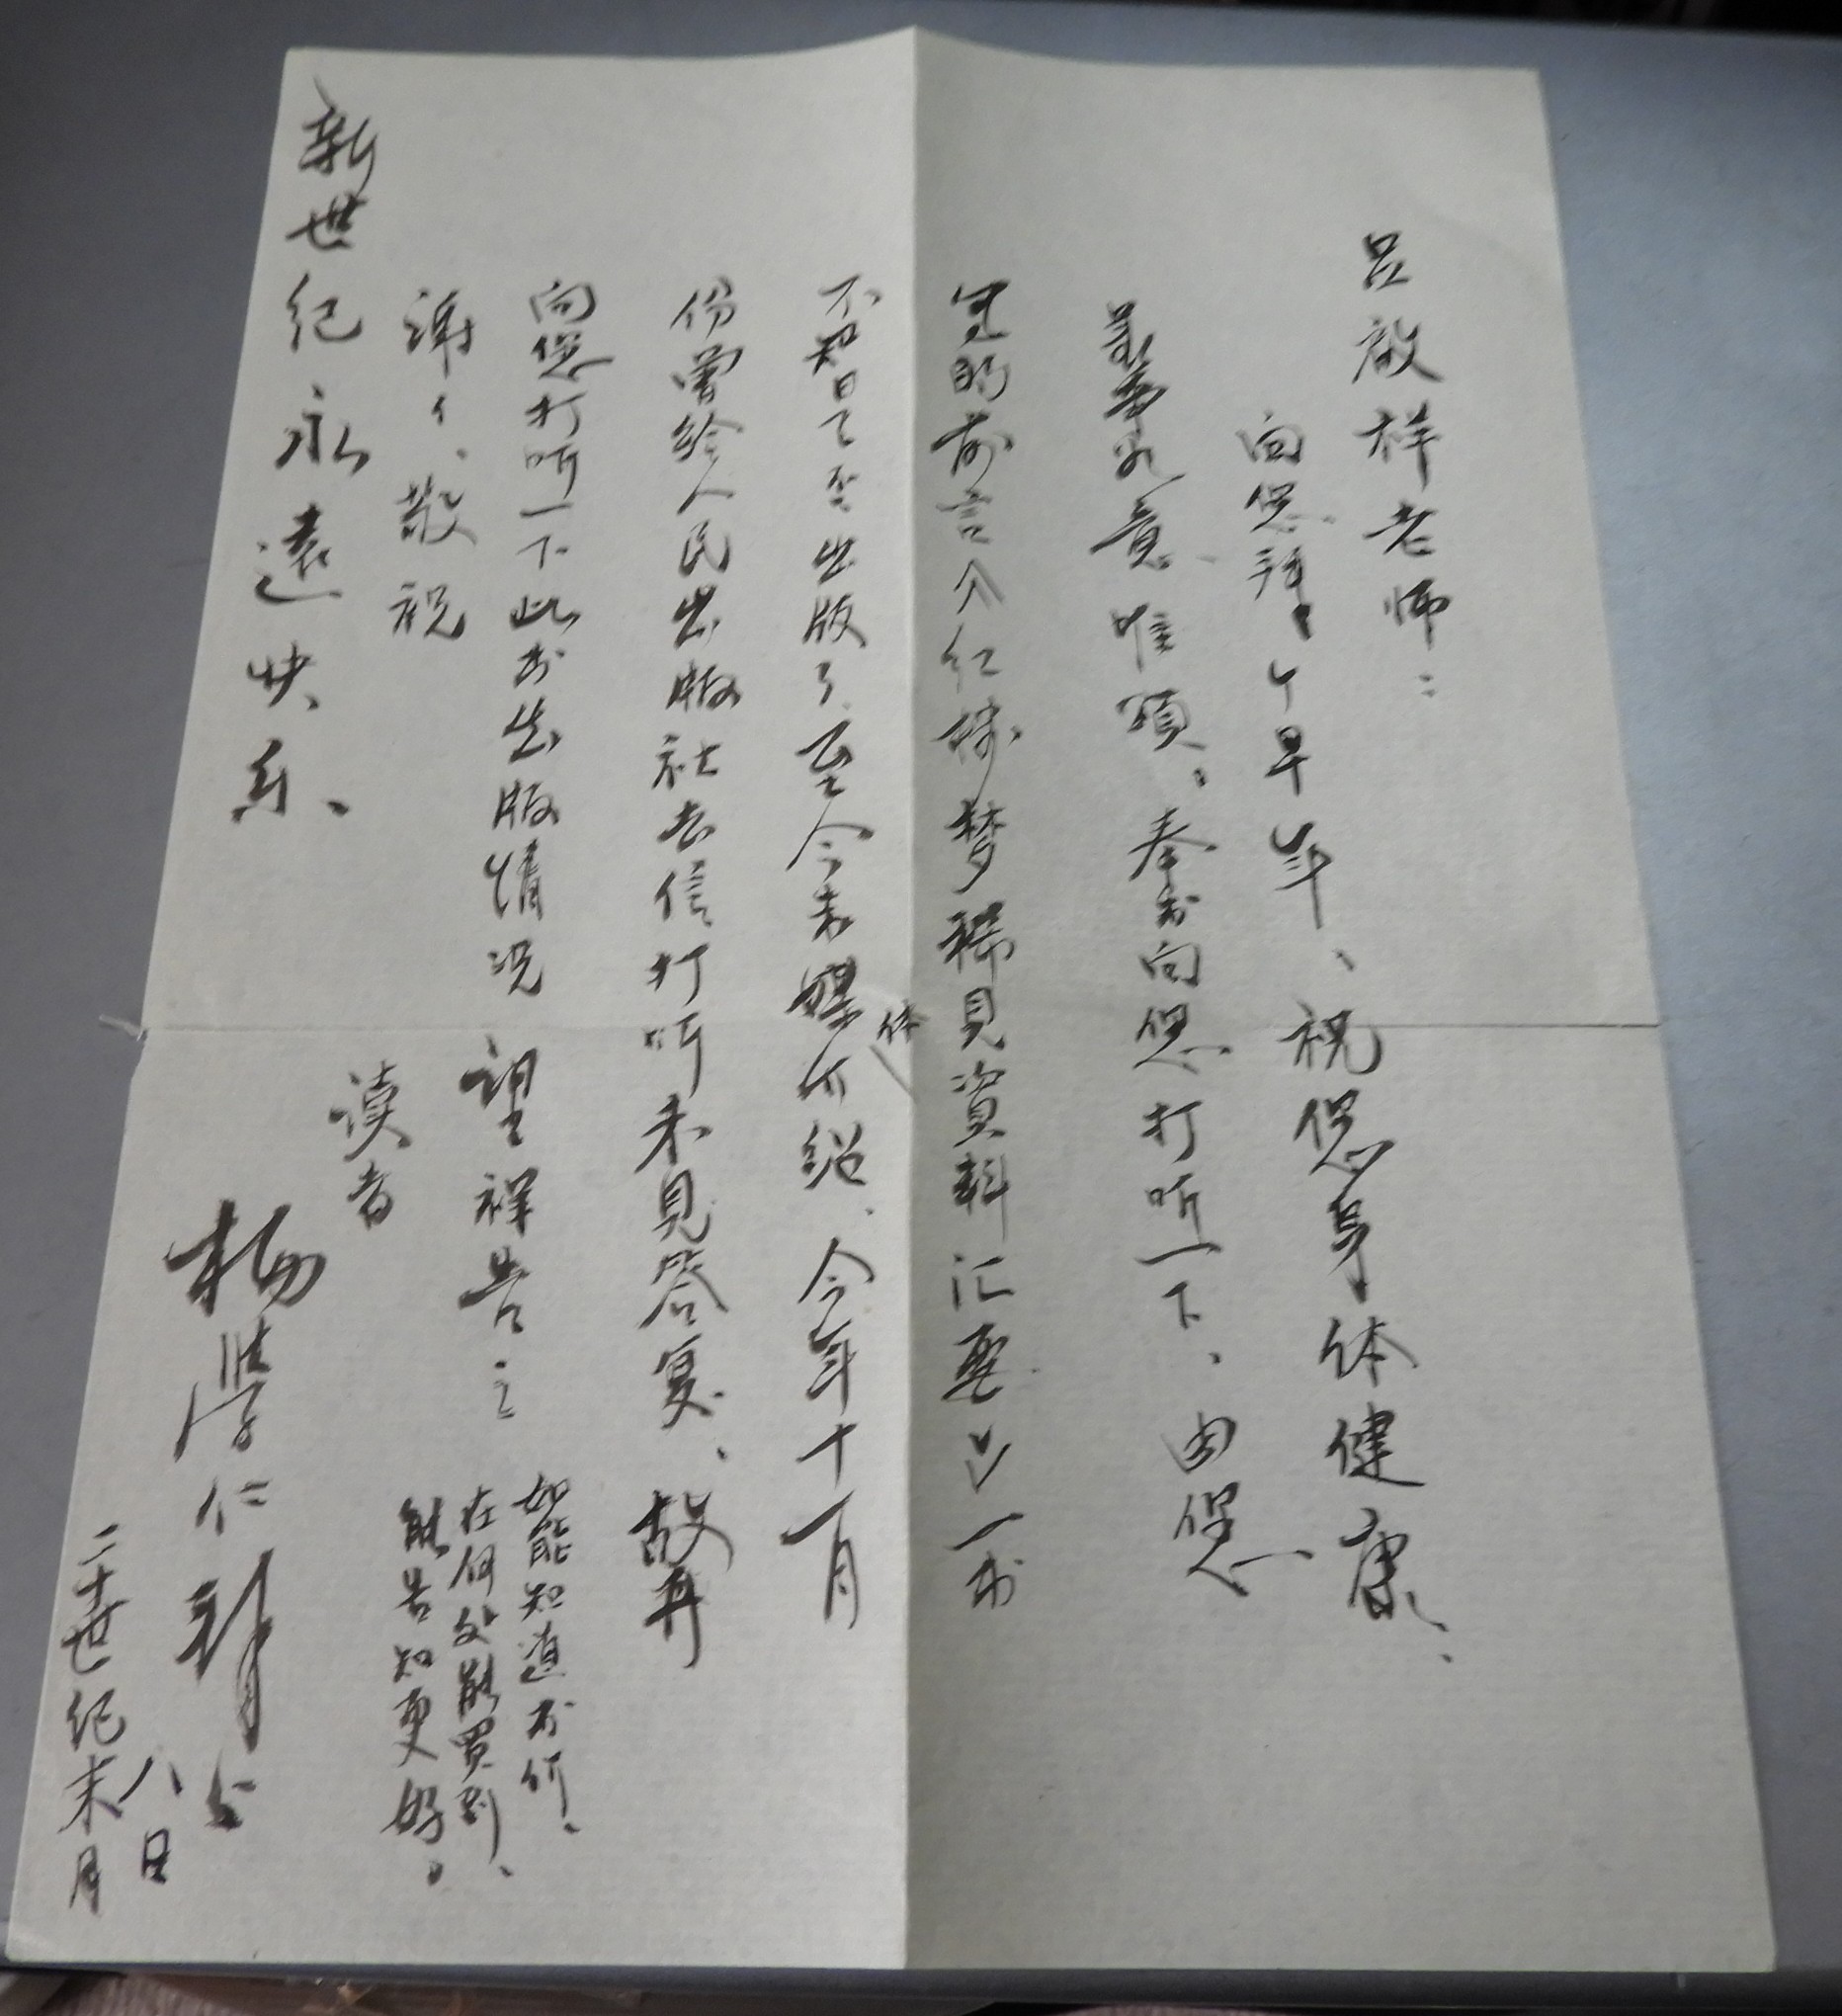 吕啟祥老师：
向您拜个早年、祝您身体健康、
意唯頌。奉书向您打听一下、由您
写的前言介红楼梦稀見資料汇
不知是否出版了、至今未媒体介绍、今年十一月
份曾给人民出版社去信打听未見答复、故再
向您打听一下此书出版情况 望祥告之
如能知道书价、
在何处能買到、
能告知更好。
谢々、敬祝
新世纪永遠快乐、
读者
楊
八日
二十世纪末月